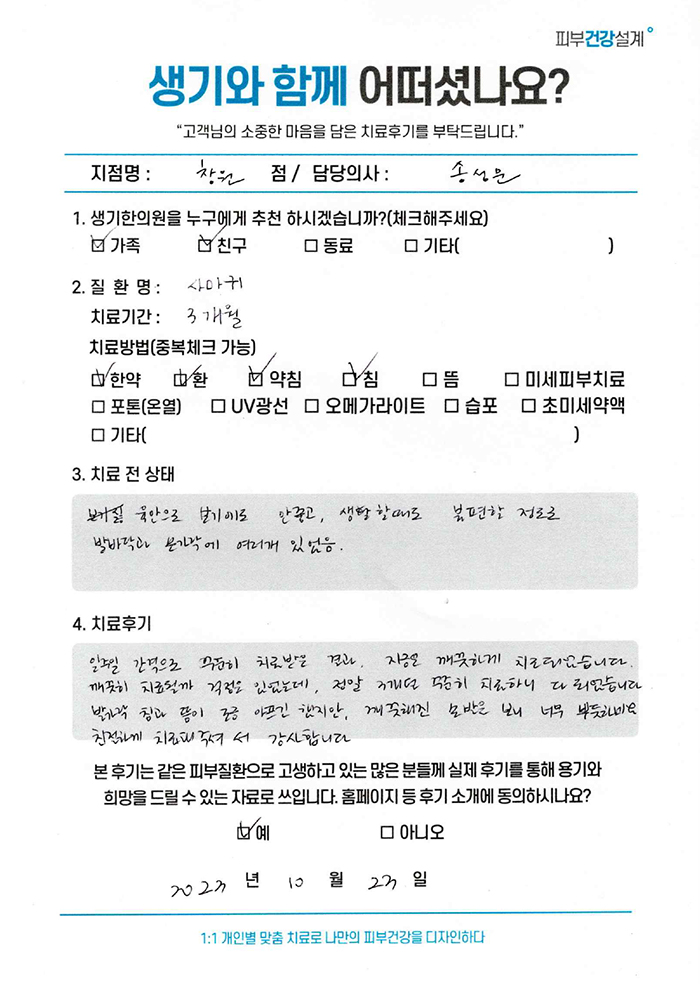 피부건강설계
생기와 함께 어떠셨나요?
“고객님의 소중한 마음을 담은 치료후기를 부탁드립니다.”
지점명 : 창원 점 / 담당의사 : 송성문
1. 생기한의원을 누구에게 추천 하시겠습니까?(체크해주세요)
☑ 가족 ☑ 친구 □ 동료 □ 기타( )
2. 질 환 명 : 사마귀
치료기간 : 3개월
치료방법(중복체크 가능)
☑ 한약 ☑ 환 ☑ 약침 ☑ 침 □ 뜸 □ 미세피부치료
□ 포톤(온열) □ UV광선 □ 오메가라이트 □ 습포 □ 초미세약액
□ 기타( )
3. 치료 전 상태
육안으로 보기에도 안좋고, 생활할때도 불편할 정도로
발바닥과 발가락에 여러개 있었음.
4. 치료후기
일주일 간격으로 꾸준히 치료받은 결과, 지금은 깨끗하게 치료되었습니다.
깨끗히 치료될까 걱정은 있었는데, 정말 3개월 꾸준히 치료하니 다 되었습니다
발가락 침과 뜸이 조금 아프긴 했지만, 깨끗해진 발을 보니 너무 뿌듯하네요
친절하게 치료해주셔서 감사합니다
본 후기는 같은 피부질환으로 고생하고 있는 많은 분들께 실제 후기를 통해 용기와
희망을 드릴 수 있는 자료로 쓰입니다. 홈페이지 등 후기 소개에 동의하시나요?
☑ 예 □ 아니오
2023 년 10 월 23 일
1:1 개인별 맞춤 치료로 나만의 피부건강을 디자인하다